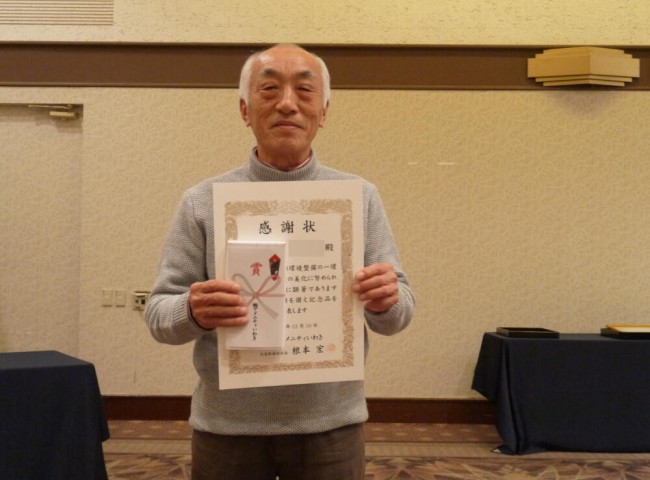 感謝状
殿
環境整備の一環
の美化に努められ
に顕著であります
を備え記念品を
呈します
年12月10日
メニティいわき
根本 宏
賞
アメニティいわき